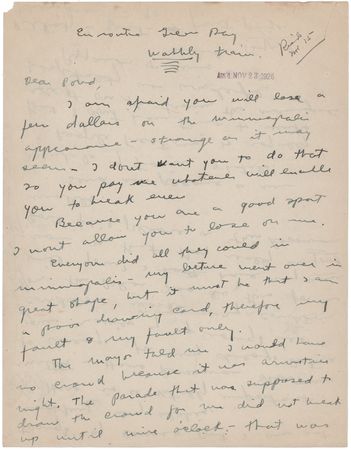 Enroute Green Bay
Wobbly train.
NOV 23 1926
Dear Pond,
I am afraid you will lose a
few dollars on the Minneapolis
appearance – strange as it may
seem – I dont want you to do that
so you pay me whatever will enable
you to break even
Because you are a good sport
I wont allow you to lose on me.
Everyone did all they could in
Minneapolis – my lecture went over in
great shape, but it must be that I am
a poor drawing card, therefore my
fault & my fault only.
The mayor told me I would have
no crowd because it was armistice
night. The parade that was supposed to
draw the crowd for me did not break
up until nine o'clock – that was